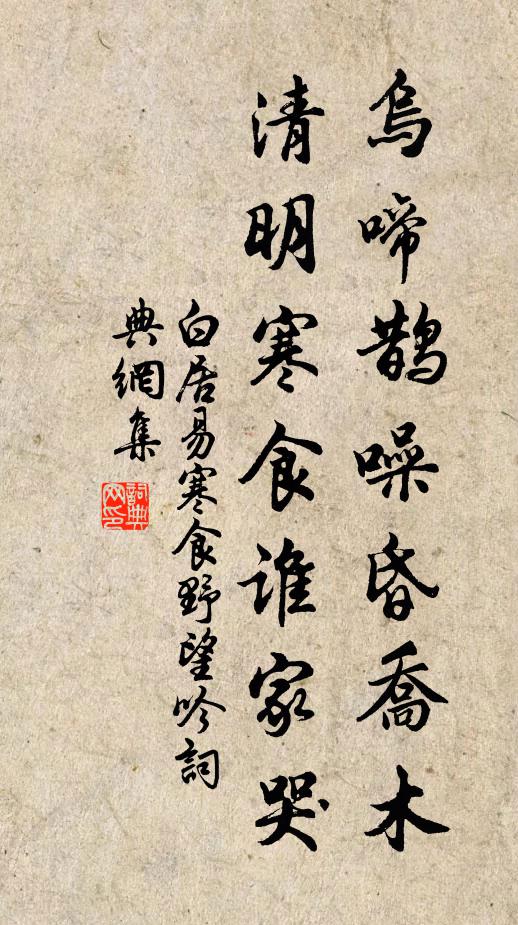 烏啼鵲噪昏喬木
清明寒食誰家哭
白居易寒食野望吟詞
典網集
詞典
网印